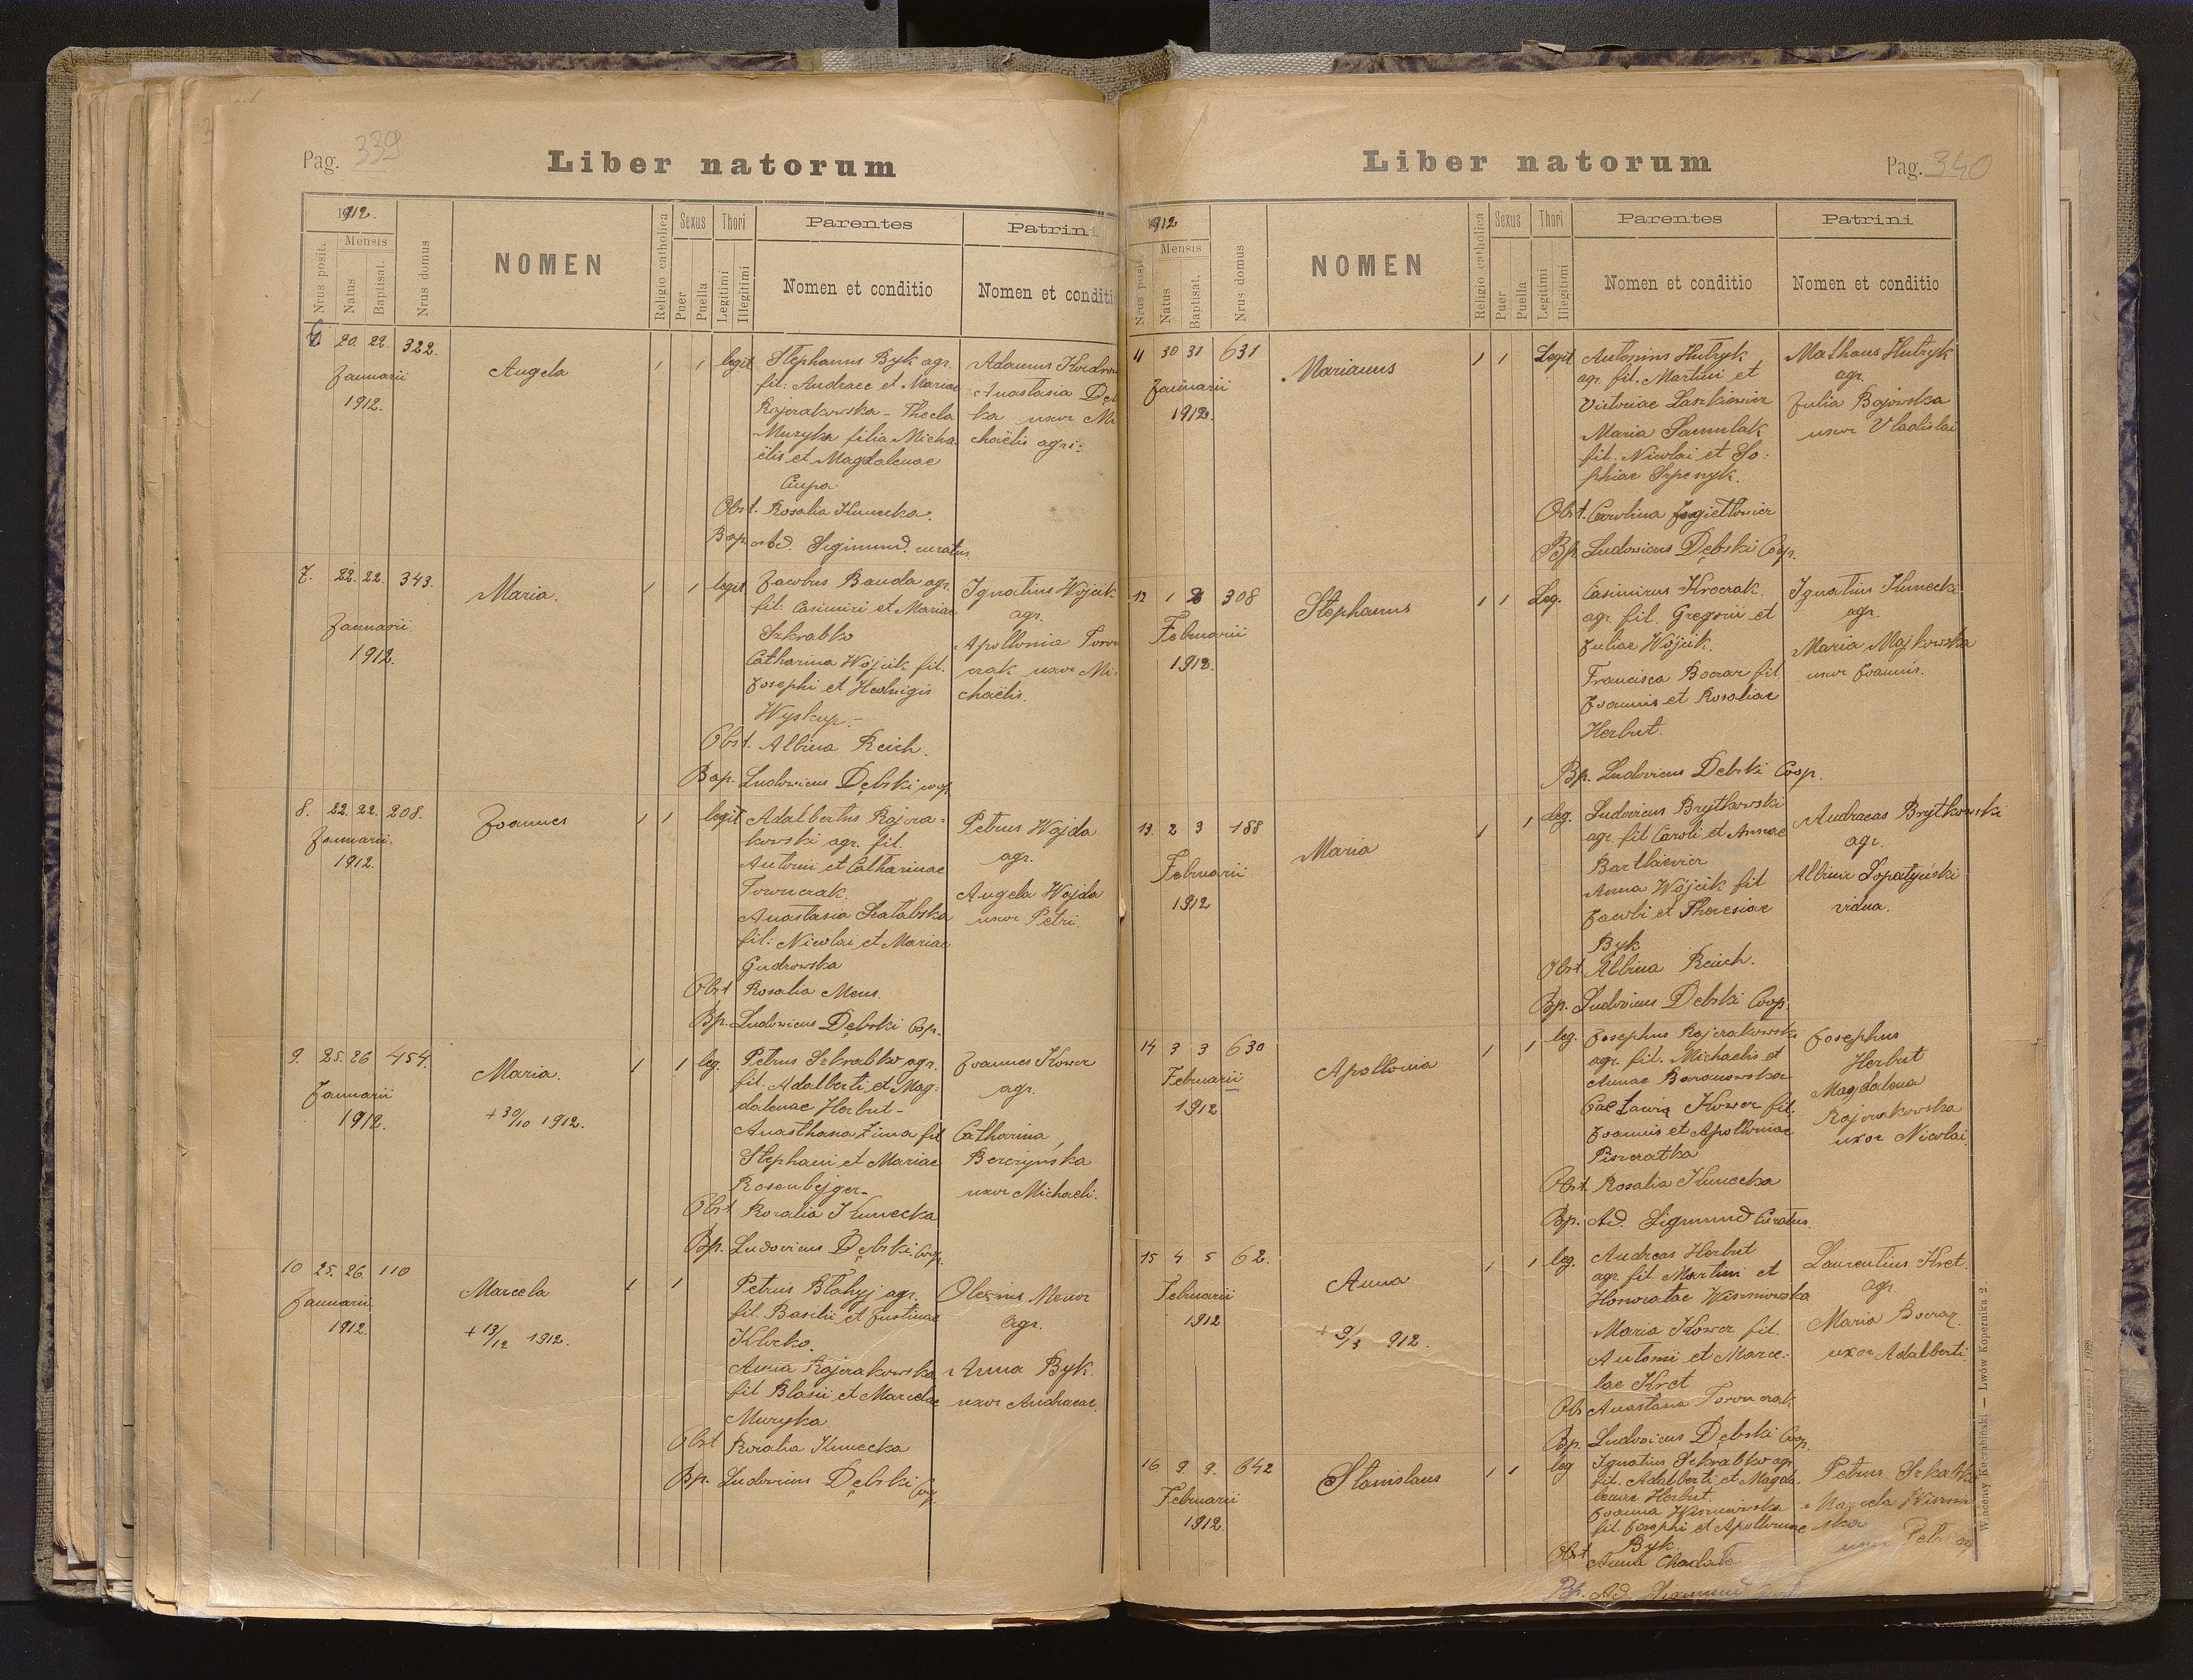 Pag. 339
Liber natorum
1912.
Mensis
Nrus posit.
Natus
Baptisat.
Nrus domus
NOMEN
Religio catholica
Sexus
Puer
Puella
Thori
Legitimi
Illegitimi
Parentes
Nomen et conditio
Patrini
Nomen et conditi
6 20. 22. 322.
Januarii
1912.
Angela
1 1 legit
Stephanus Byk agr.
fil: Andreae et Mariae
Rajczakowska - Thecla
Muzyka filia Micha-
ëlis et Magdalenae
Ciupa
Obst. Rosalia Kunecka.
Bap. Ad. Sigmund. curatus
Adamus
Anastasia
ka uxor Mi
chaëlis agri:
7. 22. 22. 343.
Januarii
1912.
Maria.
1 1 legit
Jacobus Banda agr.
fil: Casimiri et Mariae
Szkrabko
Catharina Wójcik fil.
Josephi et Hedvigis
Wyskup.-
Obst. Albina Reich.
Bap. Ludovicus Dębski coop.
Ignatius Wójcik
agr.
Apollonia
czak uxor Mi:
chaëlis.
8. 22. 22. 208.
Januarii.
1912.
Joannes
1 1 legit
Adalbertus Rajcza-
kowski agr. fil.
Antonii et Catharinae
Townczak.
Anastasia
fil: Nicolai et Mariae
Gudrowska
Obst Rosalia Mens.
Bp. Ludovicus Dębski Cop.
Petrus Wojda
agr.
Angela Wojda
uxor Petri.
9. 25. 26 454.
Januarii
1912.
Maria.
+ 30/10 1912.
1 1 leg.
Petrus Szkrabko agr.
fil. Adalberti et Mag:
dalenae Herbut-
Anasthasia Zima fil
Stephani et Mariae
Obst Rozalia Kunecka
Bp. Ludovicus Dębski Coop.
Joannes Kower
agr.
Catharina
Berezyńska
uxor Michaeli.
10 25. 26. 110
Januarii.
1912.
Marcela
+ 13/12 1912.
1 1
Petrus Błahyj agr.
fil. Basilii et Justinae
Klocko.
Anna Rajczakowska
fil Blasii et Marcelae
Muzyka
Obst Rozalia Kunecka
Bp. Ludovicus Dębski Cop.
agr.
Anna Byk.
uxor Andraeae.
Liber natorum
Pag. 340
1912
Mensis
Nrus posit.
Natus
Baptisat.
Nrus domus
NOMEN
Religio catholica
Sexus
Puer
Puella
Thori
Legitimi
Illegitimi
Parentes
Nomen et conditio
Patrini
Nomen et conditio
11 30 31 631
Januarii
1912.
Marianus
1 1 Legit
Antonius Hutryk
agr. fil. Martini et
Victoriae Laszkiewicz
Maria Samulak
fil. Nicolai et So:
phiae
Obst. Carolina Jagiełłowicz
Bp. Ludovicus Dębski Coop.
Mathaus Hutryk
agr.
Julia Bojowska
uxor Vladislai
12 1 2 308
Februarii
1912.
Stephanus
1 1 Leg.
Casimirus Kroczak
agr. fil. Gregorii et
Juliae Wójcik.
Francisca Boczar fil.
Joannis et Rosaliae
Herbut.
Bp. Ludovicus Dębski Coop.
Ignatius Kunecki
agr.
Maria Majkowska
uxor Joannis.
13. 2 3 188
Februarii
1912
Maria
1 1 leg.
Ludovicus Brytkowski
agr. fil Caroli et Annae
Bartkiewicz
Anna Wójcik fil
Jacobi et Theresiae
Byk
Obst Albina Reich.
Bp. Ludovicus Dębski Coop.
Andraeas Brytkowski
agr.
Albina Łopatyński
vidua.
14 3 3 630
Februarii
1912
Apollonia
1 1 leg.
Josephus Rajczakowski
agr. fil. Michaelis et
Annae Baranowska
Kower fil.
Joannis et Apolloniae
Obst. Rosalia Kunecka
Bp. Ad. Sigmund Curatus.
Josephus
Herbut
Magdalena
Rajczakowska
uxor Nicolai
15 4 5 62.
Februarii
1912
Anna
+ 9/3 912.
1 1 leg.
Andreas Herbut
agr. fil. Martini et
Honoratae Wiszniowska
Maria Kower fil.
Antonii et Marce:
lae Kret
Obs Anastasia
Bp. Ludovicus Dębski Coop.
Laurentius Kret.
agr.
Maria Boczar
uxor Adalberti
16. 9. 9. 642
Februarii
1912.
Stanislaus
1 1 leg
Ignatius Szkrabko agr.
fil. Adalberti et Magda
lenae Herbut.
Joanna Wiszniowska
fil. Josephi et Apolloniae
Byk.
Obst Anna
Bp. Ad. Sigmund
Petrus
ska
Wincenty Kuczabiński — Lwów Kopernika 2.